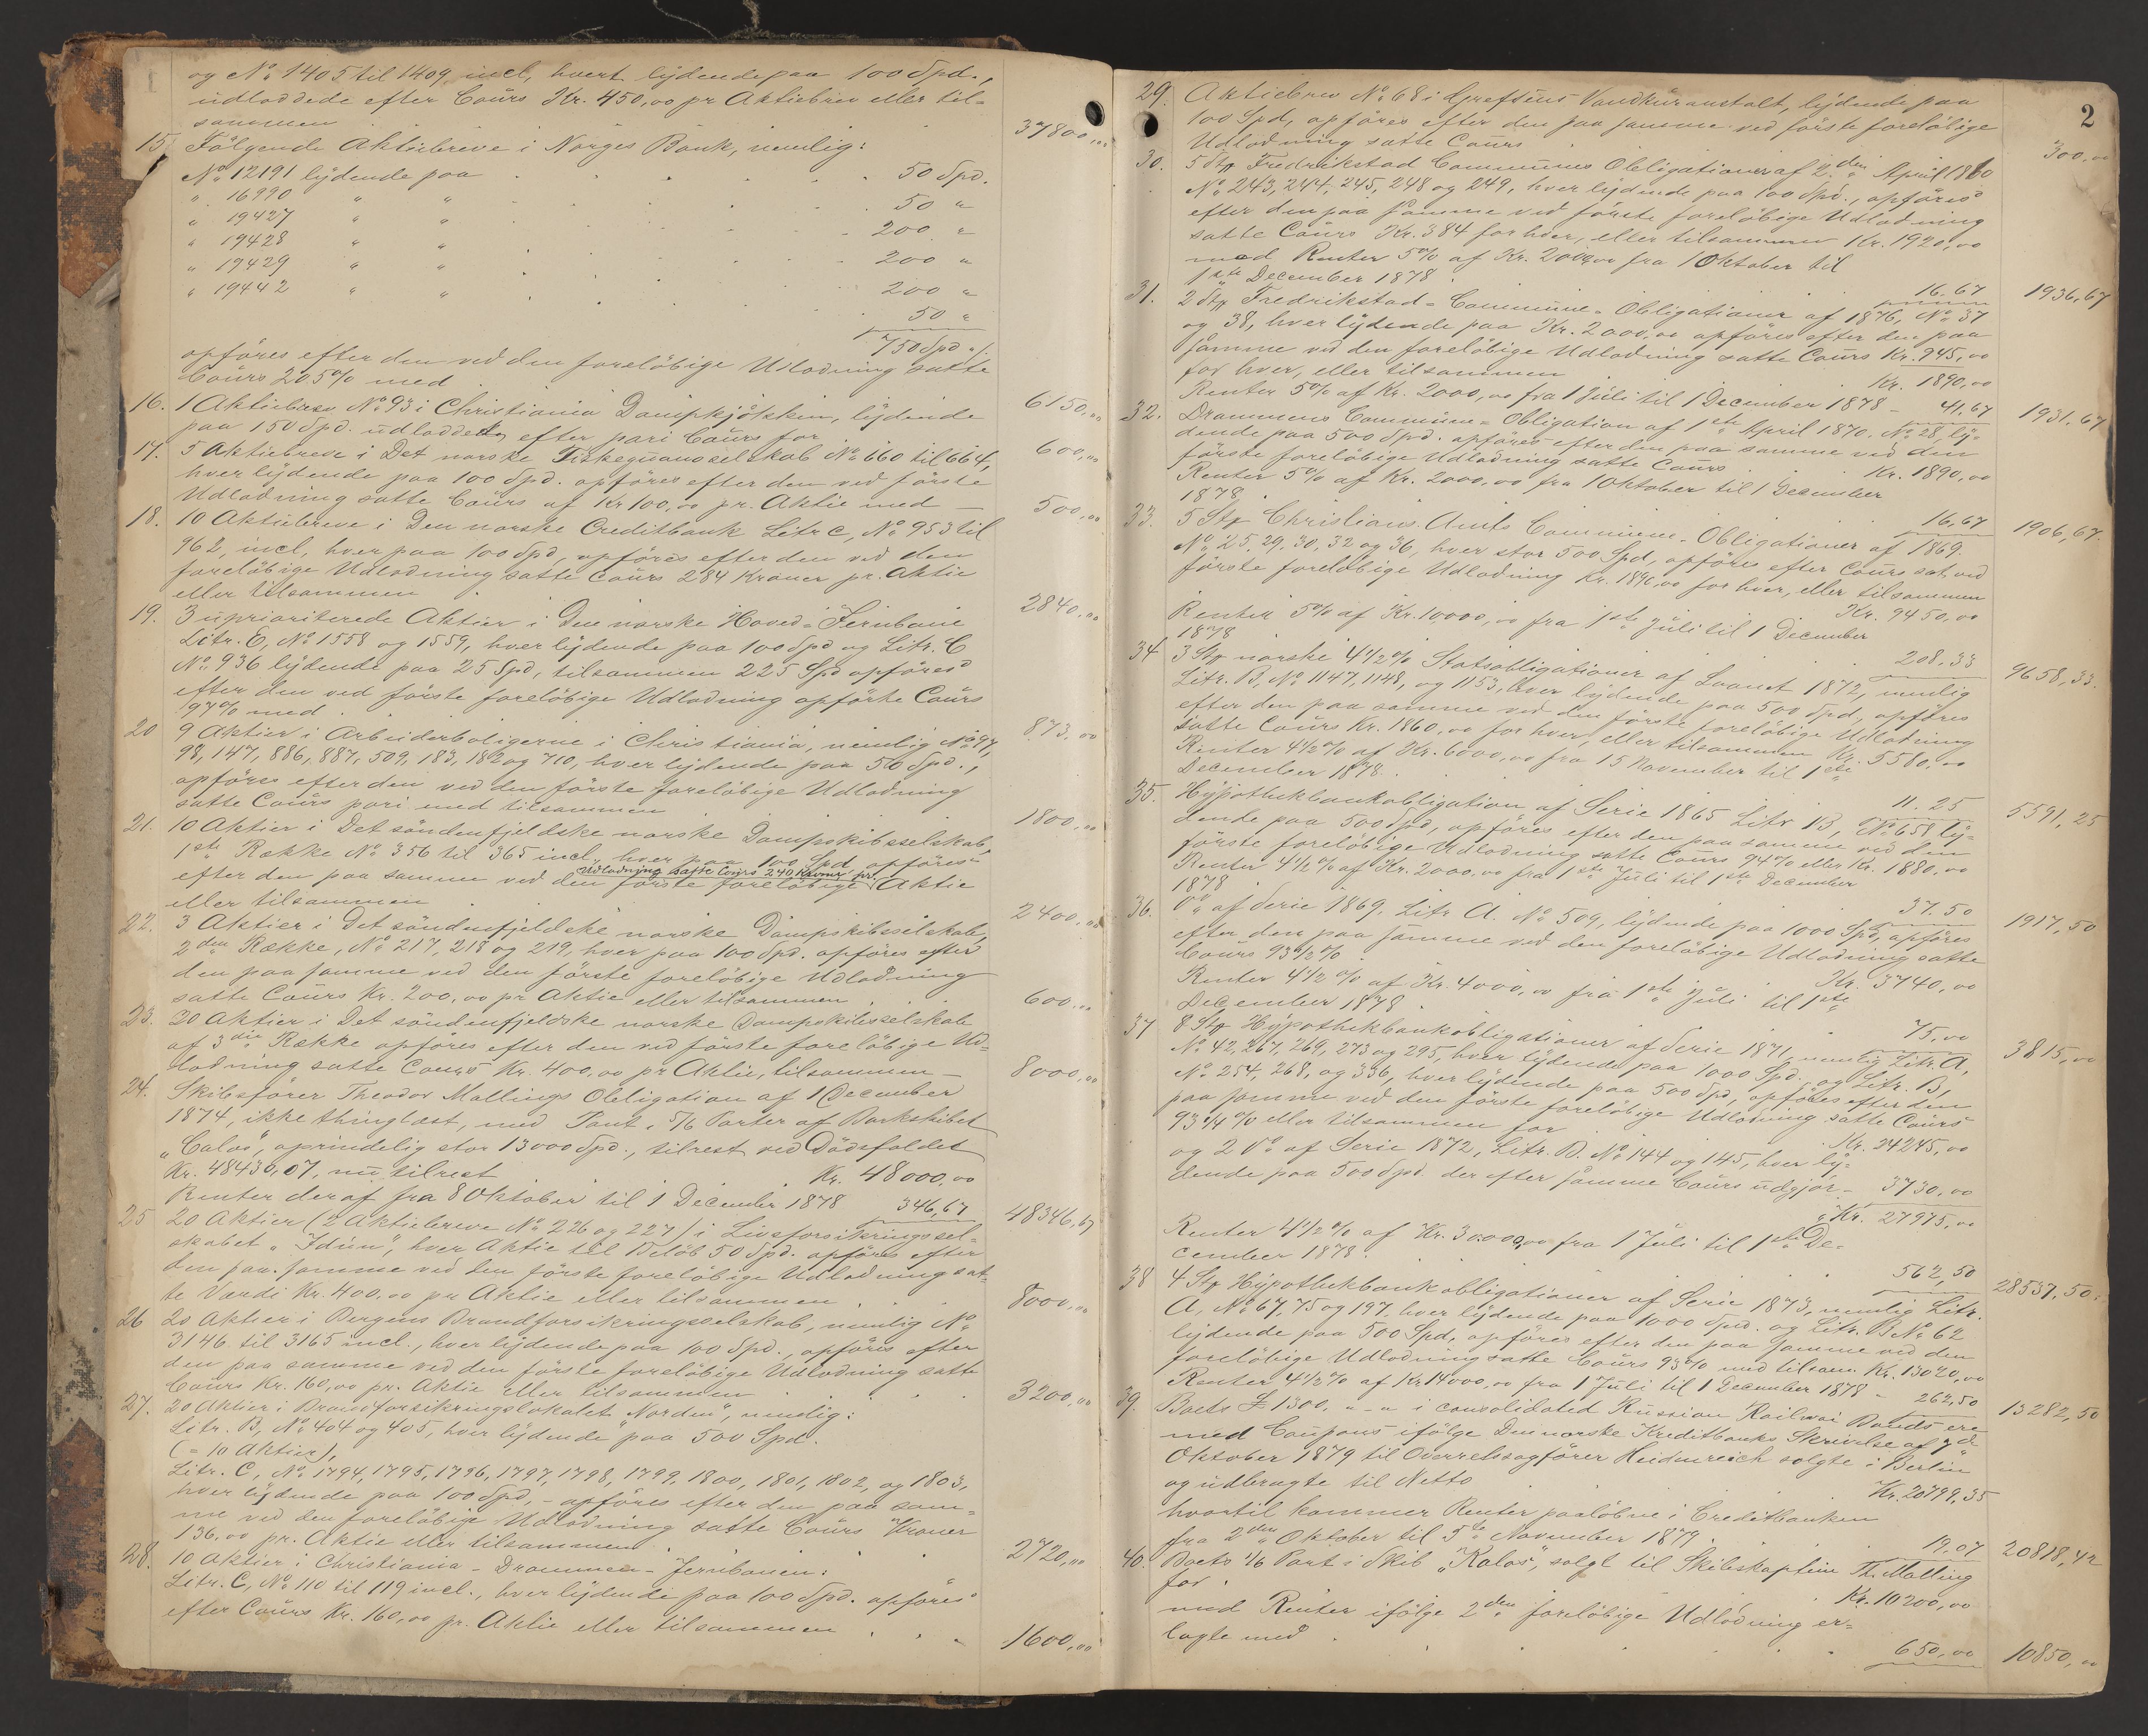 og No 1405 til 1409 incl, hvert lydende paa 100 Spd.,
udloddede efter Cours Kr. 450,00 pr Aktiebrev eller til-
sammen 37800,00
15. Følgende Aktiebreve i Norges Bank, nemlig:
No 12191 lydende paa 50 Spd.
" 16990 " " 50 "
" 19427 " " 200 "
" 19428 " " 200 "
" 19429 " " 200 "
" 19442 " " 50 "
750 Spd
opföres efter den ved den forelöbige Udlodning satte
Cours 205% med 6150,00
16. 1 Aktiebrev No 93 i Christiania Dampkjökken, lydende
paa 150 Spd. udloddedes efter pari Cours for 600,00
17. 5 Aktiebreve i Det norske Fiskeguanoselskab No 660 til 664,
hver lydende paa 100 Spd. opföres efter den ved förste
Udlodning satte Cours af Kr 100,00 pr. Aktie med 500,00
18. 10 Aktiebreve i Den norske Creditbank Litr C, No 953 til
962, incl, hver paa 100 Spd, opföres efter den ved den
forelöbige Udlodning satte Cours 284 Kroner pr. Aktie
eller tilsammen 2840,00
19. 3 uprioriterede Aktier i Den norske Hoved-Jernbane
Litr. C, No 1558 og 1559, hver lydende paa 100 Spd og Litr. C
No 936 lydende paa 25 Spd, tilsammen 225 Spd opföres
efter den ved förste forelöbige Udlodning opförte Cours
97% med 873,00
20 9 Aktier i Arbeiderboligerne i Christiania, nemlig No 97,
98, 147, 886, 887, 509, 183, 182 og 710, hver lydende paa 50 Spd.,
opföres efter den ved den förste forelöbige Udlodning
satte Cours pari med tilsammen 1800,00
21. 10 Aktier i Det söndenfjeldske norske Dampskibsselskab,
1ste Række No 356 til 365 incl, hver paa 100 Spd, opföres
Udlodning satte Cours 240 Kroner pr.
efter den paa samme ved den förste forelöbige Aktie
eller tilsammen 2400,00
22. 3 Aktier i Det söndenfjeldske norske Dampskibsselskab,
2den Række, No 217, 218 og 219, hver paa 100 Spd. opföres efter
den paa samme ved den förste forelöbige Udlodning
satte Cours Kr. 200,00 pr Aktie eller tilsammen 600,00
23. 20 Aktier i Det söndenfjeldske norske Dampskibsselskab
af 3die Række opföres efter den ved förste forelöbige Ud-
lodning satte Cours Kr. 400,00 pr Aktie, tilsammen 8000,00
24. Skibsförer Theodor Mallings Obligation af 1 December
1874, ikke thinglæst, med Pant i 5/6 Parter af Barkskibet
"Calos", oprindelig stor 13000 Spd., tilrest ved Dödsfaldet
Kr. 48436,07, nu tilrest Kr. 48000,00
Renter deraf fra 8 Oktober til 1 December 1878 346,67 48346,67
25 20 Aktier (2 Aktiebreve No 226 og 227) i Livsforsikringssel-
skabet "Idun", hver Aktie til Belöb 50 Spd. opföres efter
den paa samme ved den förste forelöbige Udlodning sat-
te Værdi Kr. 400,00 pr Aktie eller tilsammen 8000,00
26 20 Aktier i Bergens Brandforsikringsselskab, nemlig No
3146 til 3165 incl., hver lydende paa 100 Spd., opföres efter
den paa samme ved den förste forelöbige Udlodning satte
Cours Kr. 160,00 pr. Aktie eller tilsammen 3200,00
27. 20 Aktier i Brandforsikringslokalet "Norden", nemlig:
Litr. B, No 404 og 405, hver lydende paa 500 Spd.
(= 10 Aktier),
Litr. C, No 1794, 1795, 1796, 1797, 1798, 1799, 1800, 1801, 1802, og 1803,
hver lydende paa 100 Spd, - opföres efter den paa sam-
me ved den forelöbige Udlodning satte Cours Kroner
136,00 pr. Aktie eller tilsammen 2720,00
28. 10 Aktier i Christiania-Drammen-Jernbanen:
Litr. C, No 110 til 119 incl., hver lydende paa 100 Spd. opföres
efter Cours Kr. 160,00 pr. Aktie eller tilsammen 1600,00
2
29. Aktiebrev No 68 i Grefsens Vandkuranstalt, lydende paa
100 Spd, opföres efter den paa samme ved förste forelöbige
Udlodning satte Cours 300,00
30. 5 Stk Fredrikstad Communes Obligationer af 2den April 1860
No 243, 244, 245, 248 og 249, hver lydende paa 100 Spd., opföres
efter den paa samme ved förste forelöbige Udlodning
satte Cours Kr. 384 for hver, eller tilsammen Kr. 1920,00
med Renter 5% af Kr. 2000,00 fra 1 Oktober til
1ste December 1878 16,67 1936,67
31. 2 Stk Fredrikstad-Commune-Obligationer af 1876, No 37
og 38, hver lydende paa Kr. 2000,00 opföres efter den paa
samme ved den forelöbige Udlodning satte Cours Kr. 945,00
for hver, eller tilsammen Kr. 1890,00
Renter 5% af Kr. 2000,00 fra 1 Juli til 1 December 1878 - 41,67 1931,67
32. Drammens Commune-Obligation af 1ste April 1870. No 28, ly-
dende paa 500 Spd. opföres efter den paa samme ved den
förste forelöbige Udlodning satte Cours Kr. 1890,00
Renter 5% af Kr. 2000,00 fra 1 Oktober til 1 December
1878 16,67 1906,67.
33. 5 Stk Christians Amts Commune-Obligationer af 1869.
No 25, 29, 30, 32 og 36, hver stor 500 Spd, opföres efter Cours sat ved
förste forelöbige Udlodning Kr. 1890,00 for hver, eller tilsammen
Kr. 9450,00
Renter 5% af Kr. 10,000,00 fra 1ste Juli til 1 December
1878 208,33 9658,33.
34 3 Stk norske 4 1/2% Statsobligationer af Laanet 1872, nemlig
Litr. B, No 1147, 1148, og 1153, hver lydende paa 500 Spd, opföres
efter den paa samme ved den förste forelöbige Udlodning
satte Cours Kr. 1860,00 for hver, eller tilsammen Kr. 5580,00
Renter 4 1/2% af Kr. 6000,00 fra 15 November til 1ste
December 1878 11.25 5591,25
35. Hypothekbankobligation af Serie 1865 Litr B, No 658 ly-
dende paa 500 Spd, opföres efter den paa samme ved den
förste forelöbige Udlodning satte Cours 94% eller Kr. 1880,00
Renter 4 1/2% af Kr. 2000,00 fra 1ste Juli til 1ste December
1878 37.50 1917,50
36. Do af Serie 1869, Litr A. No 509, lydende paa 1000 Spd, opföres
efter den paa samme ved den forelöbige Udlodning satte
Cours 93 1/2% Kr. 3740,00
Renter 4 1/2% af Kr. 4000,00 fra 1ste Juli til 1ste
December 1878 75,00 3815,00
37 8 Stk Hypothekbankobligationer af Serie 1871, nemlig Litr. A,
No 42, 267, 269, 273 og 295, hver lydende paa 1000 Spd. og Litr. B,
No 254, 268, og 336, hver lydende paa 500 Spd, opföres efter den
paa samme ved den förste forelöbige Udlodning satte Cours
93 1/4% eller tilsammen for Kr. 24245,00
og 2 Do af Serie 1872, Litr. B. No 144 og 145, hver ly-
dende paa 500 Spd. der efter samme Cours udgjör - 3730,00
Kr. 27975,00
Renter 4 1/2% af Kr. 30.000,00 fra 1 Juli til 1ste De-
cember 1878. 562,50 28537,50.
38 4 Stk Hypothekbankobligationer af Serie 1873, nemlig Litr.
A, No 67, 75 og 197, hver lydende paa 1000 Spd. og Litr. B No 62
lydende paa 500 Spd, opföres efter den paa samme ved den
forelöbige Udlodning satte Cours 93% med tilsam. Kr. 13020,00
Renter 4 1/2% af Kr 14000,00 fra 1 Juli til 1 December 1878 - 262,50 13282,50
39. Boets £ 1300. "-" i consolidated Russian Railwai Bonds ere
med Coupons ifölge Den norske Kreditbanks Skrivelse af 7de
Oktober 1879 til Overretssagförer Heidenreich solgte i Berlin
og udbragte til Netto Kr. 20799,35
hvortil kommer Renter paalöbne i Creditbanken
fra 2den Oktober til 5te November 1879 19,07 20818,42
40. Boets 1/6 Part i Skib "Kalos", solgt til Skibskaptein Th. Malling
for Kr. 10200,00
med Renter ifölge 2den forelöbige Udlodning er-
lagte med 650,00 10850,00